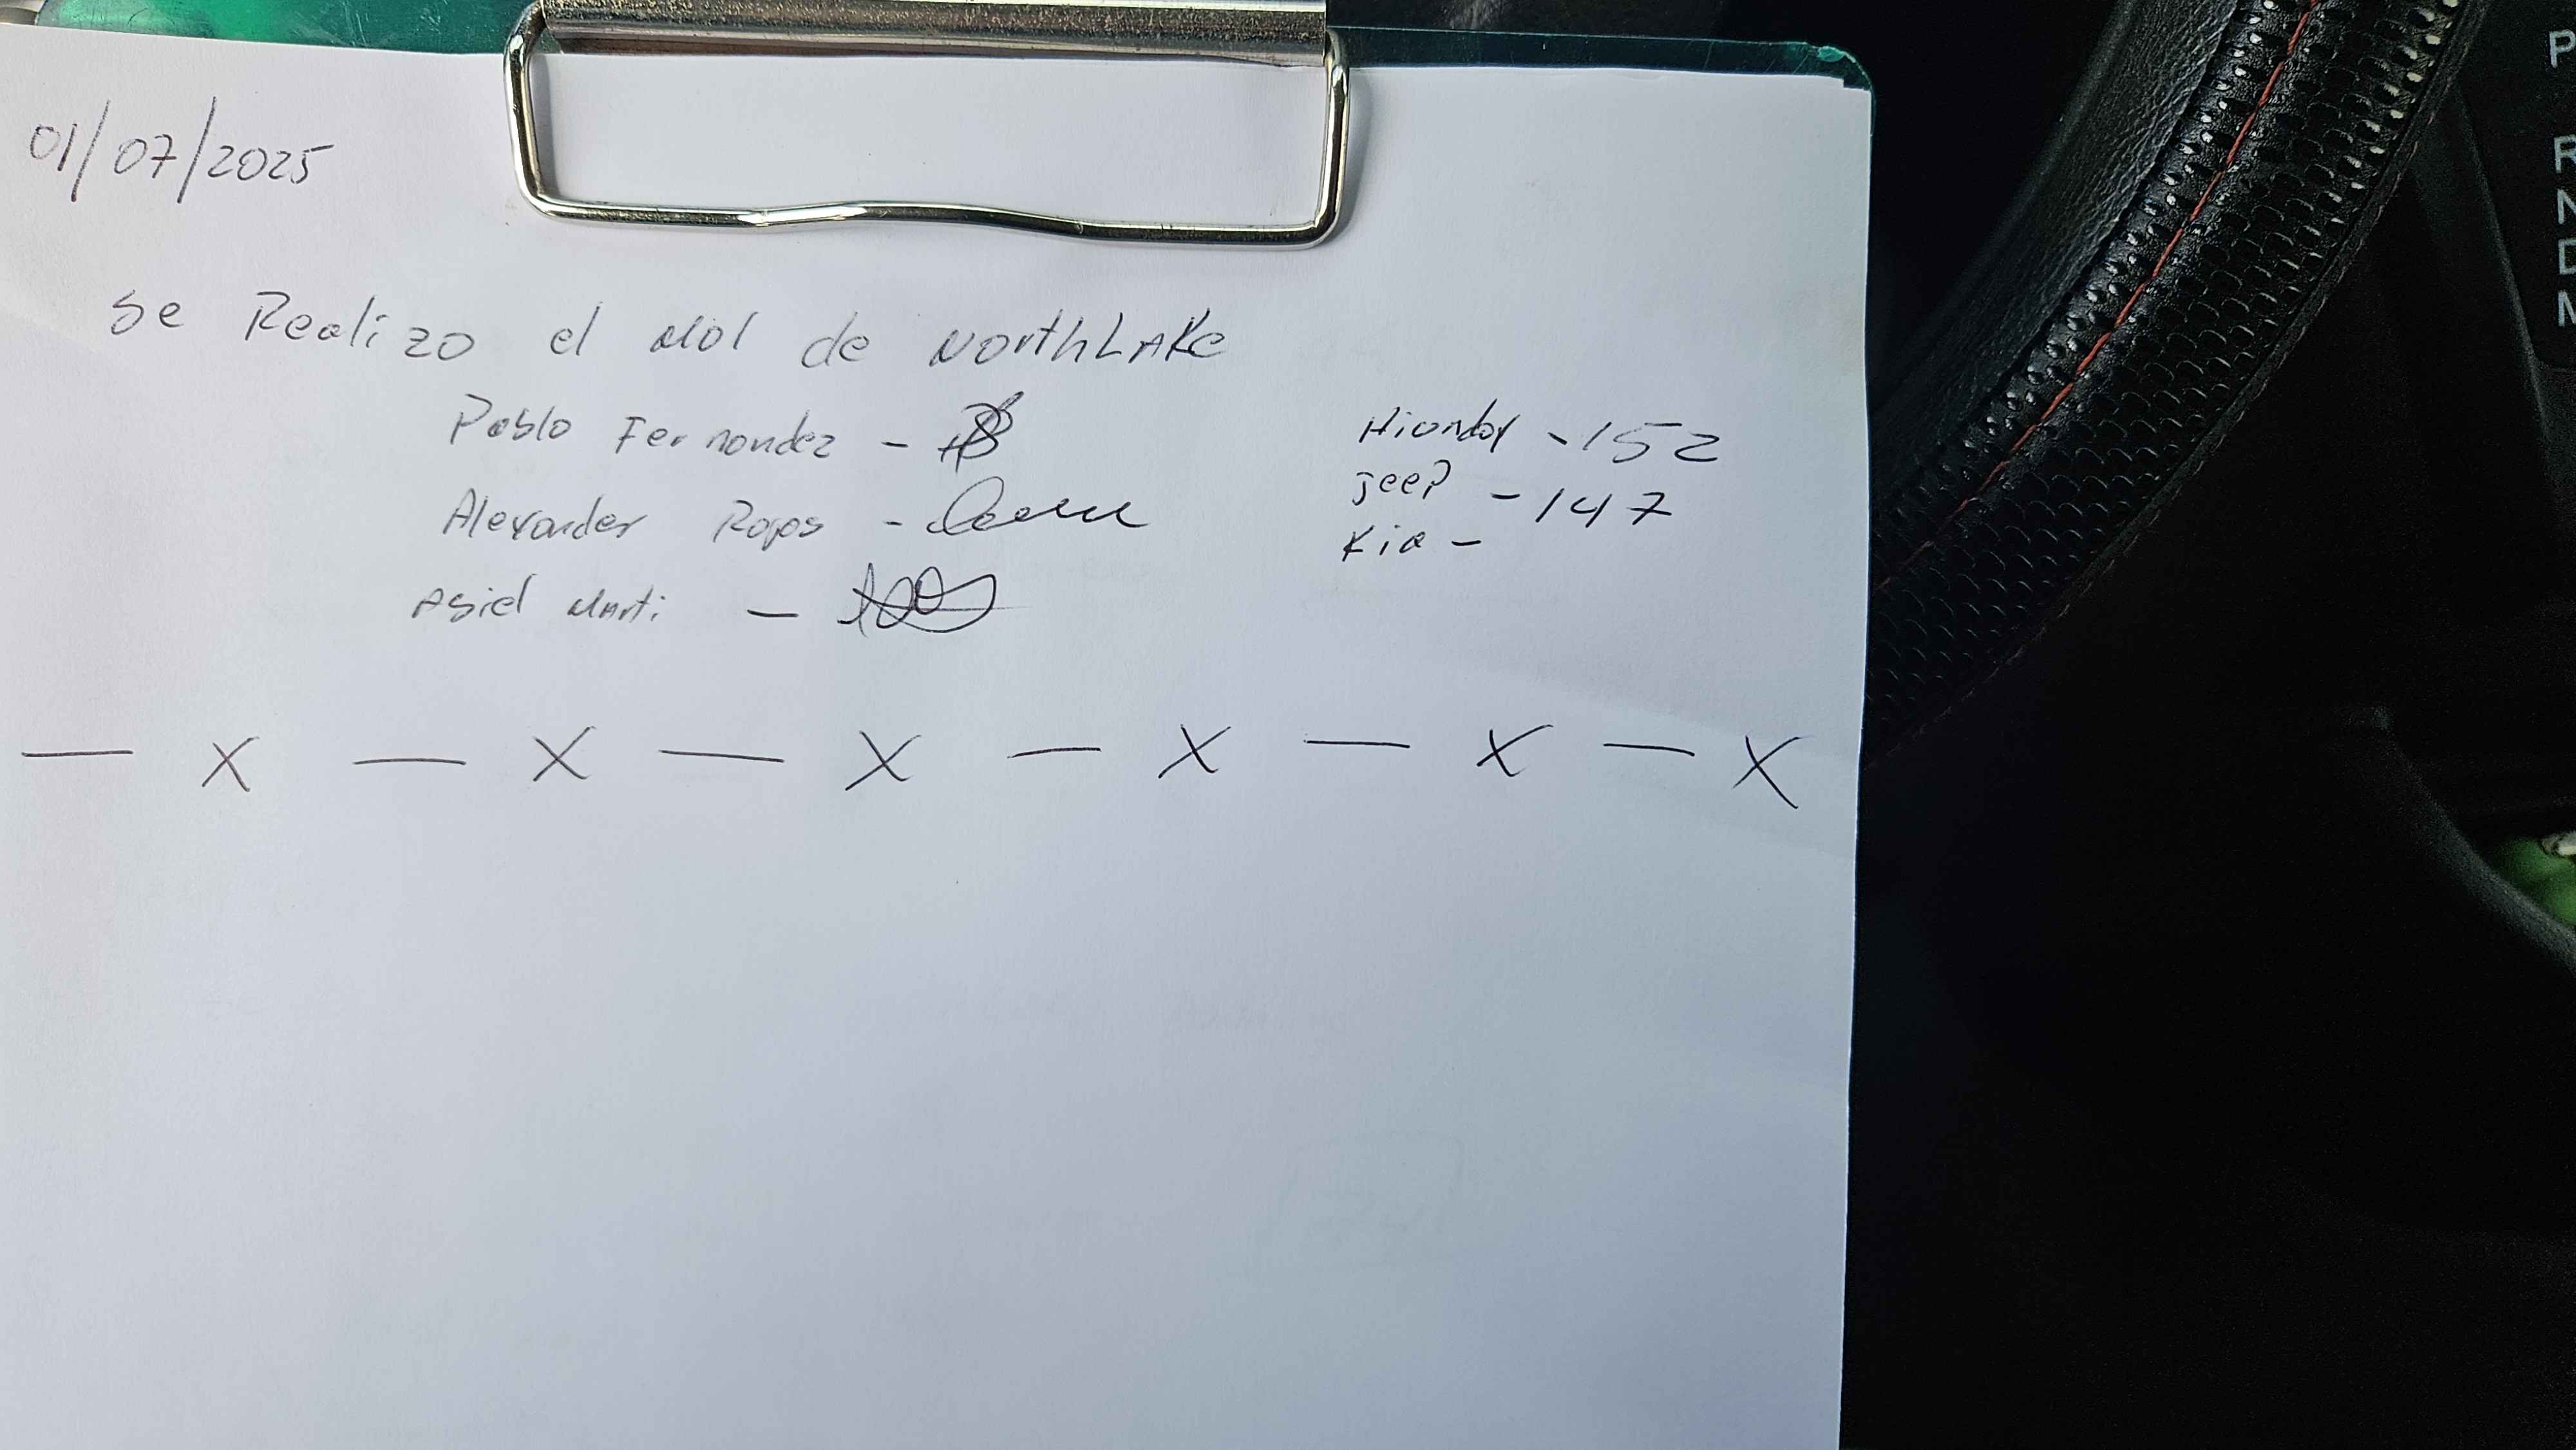 01/07/2025
Se Realizo el Mol de NorthLAKe
Pablo Fernandez -
Alexander Rojas -
Asiel Marti -
Hianday - 152
jeep - 147
Kia -
— X — X — X — X — X — X
P
R
N
D
M